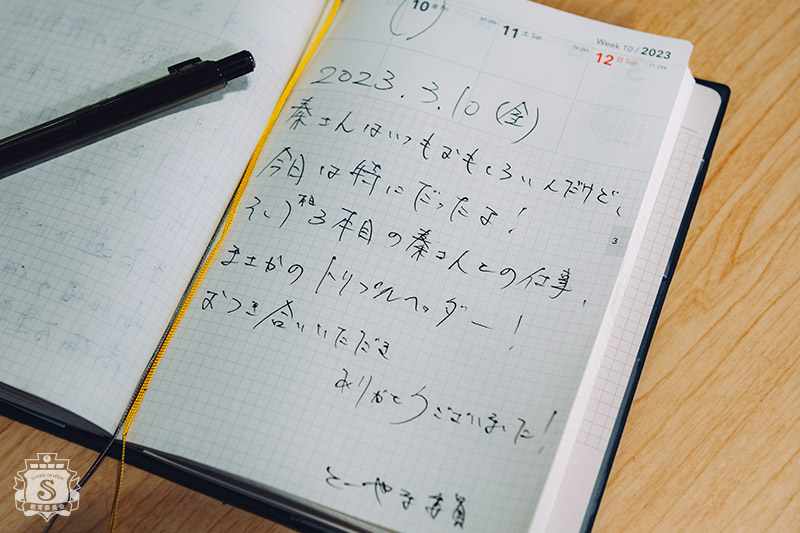 10
11 土 Sat
Week 10 / 2023
12 日 Sun
2023.3.10 (金)
秦さんはいつもおもしろいんだけど、
今日は特にだったよ!
3本目の秦さんとの仕事、
まさかのトリプルヘッダー!
おつき合いいただき
ありがとうございました!
とーやま委員
3
SCHOOL OF LOCK!
S
教育委員会